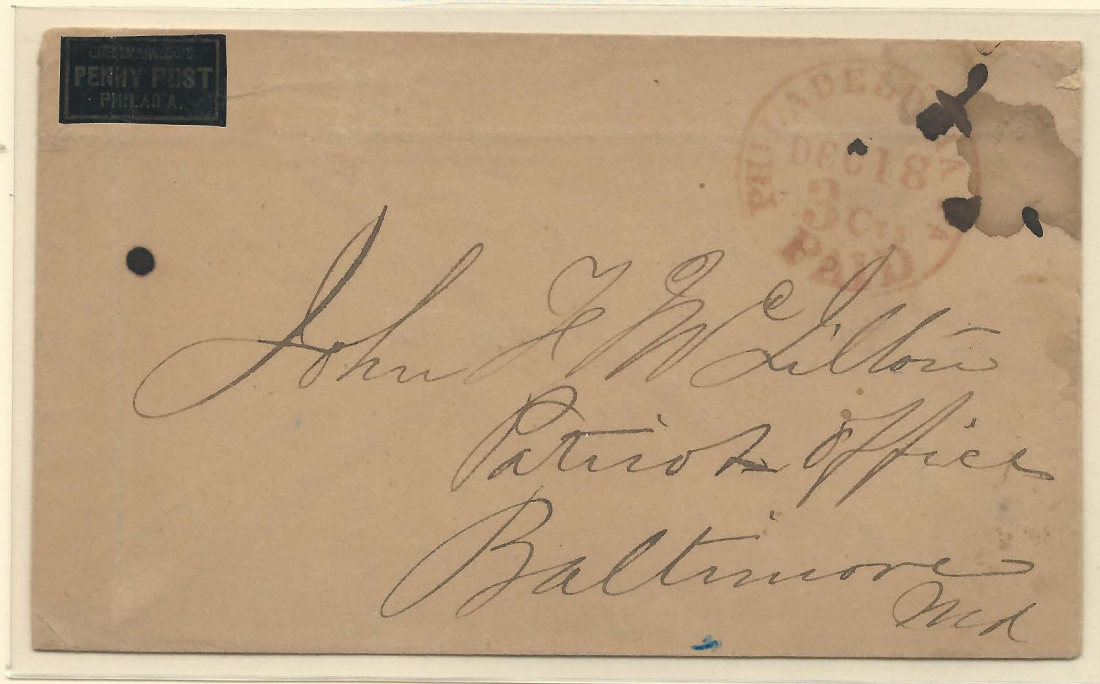 PENNY POST
PHILAD'A.
PHILADELPHIA
DEC 18
3 Cts
PAID
John F McJilton
Patriot Office
Baltimore
Md